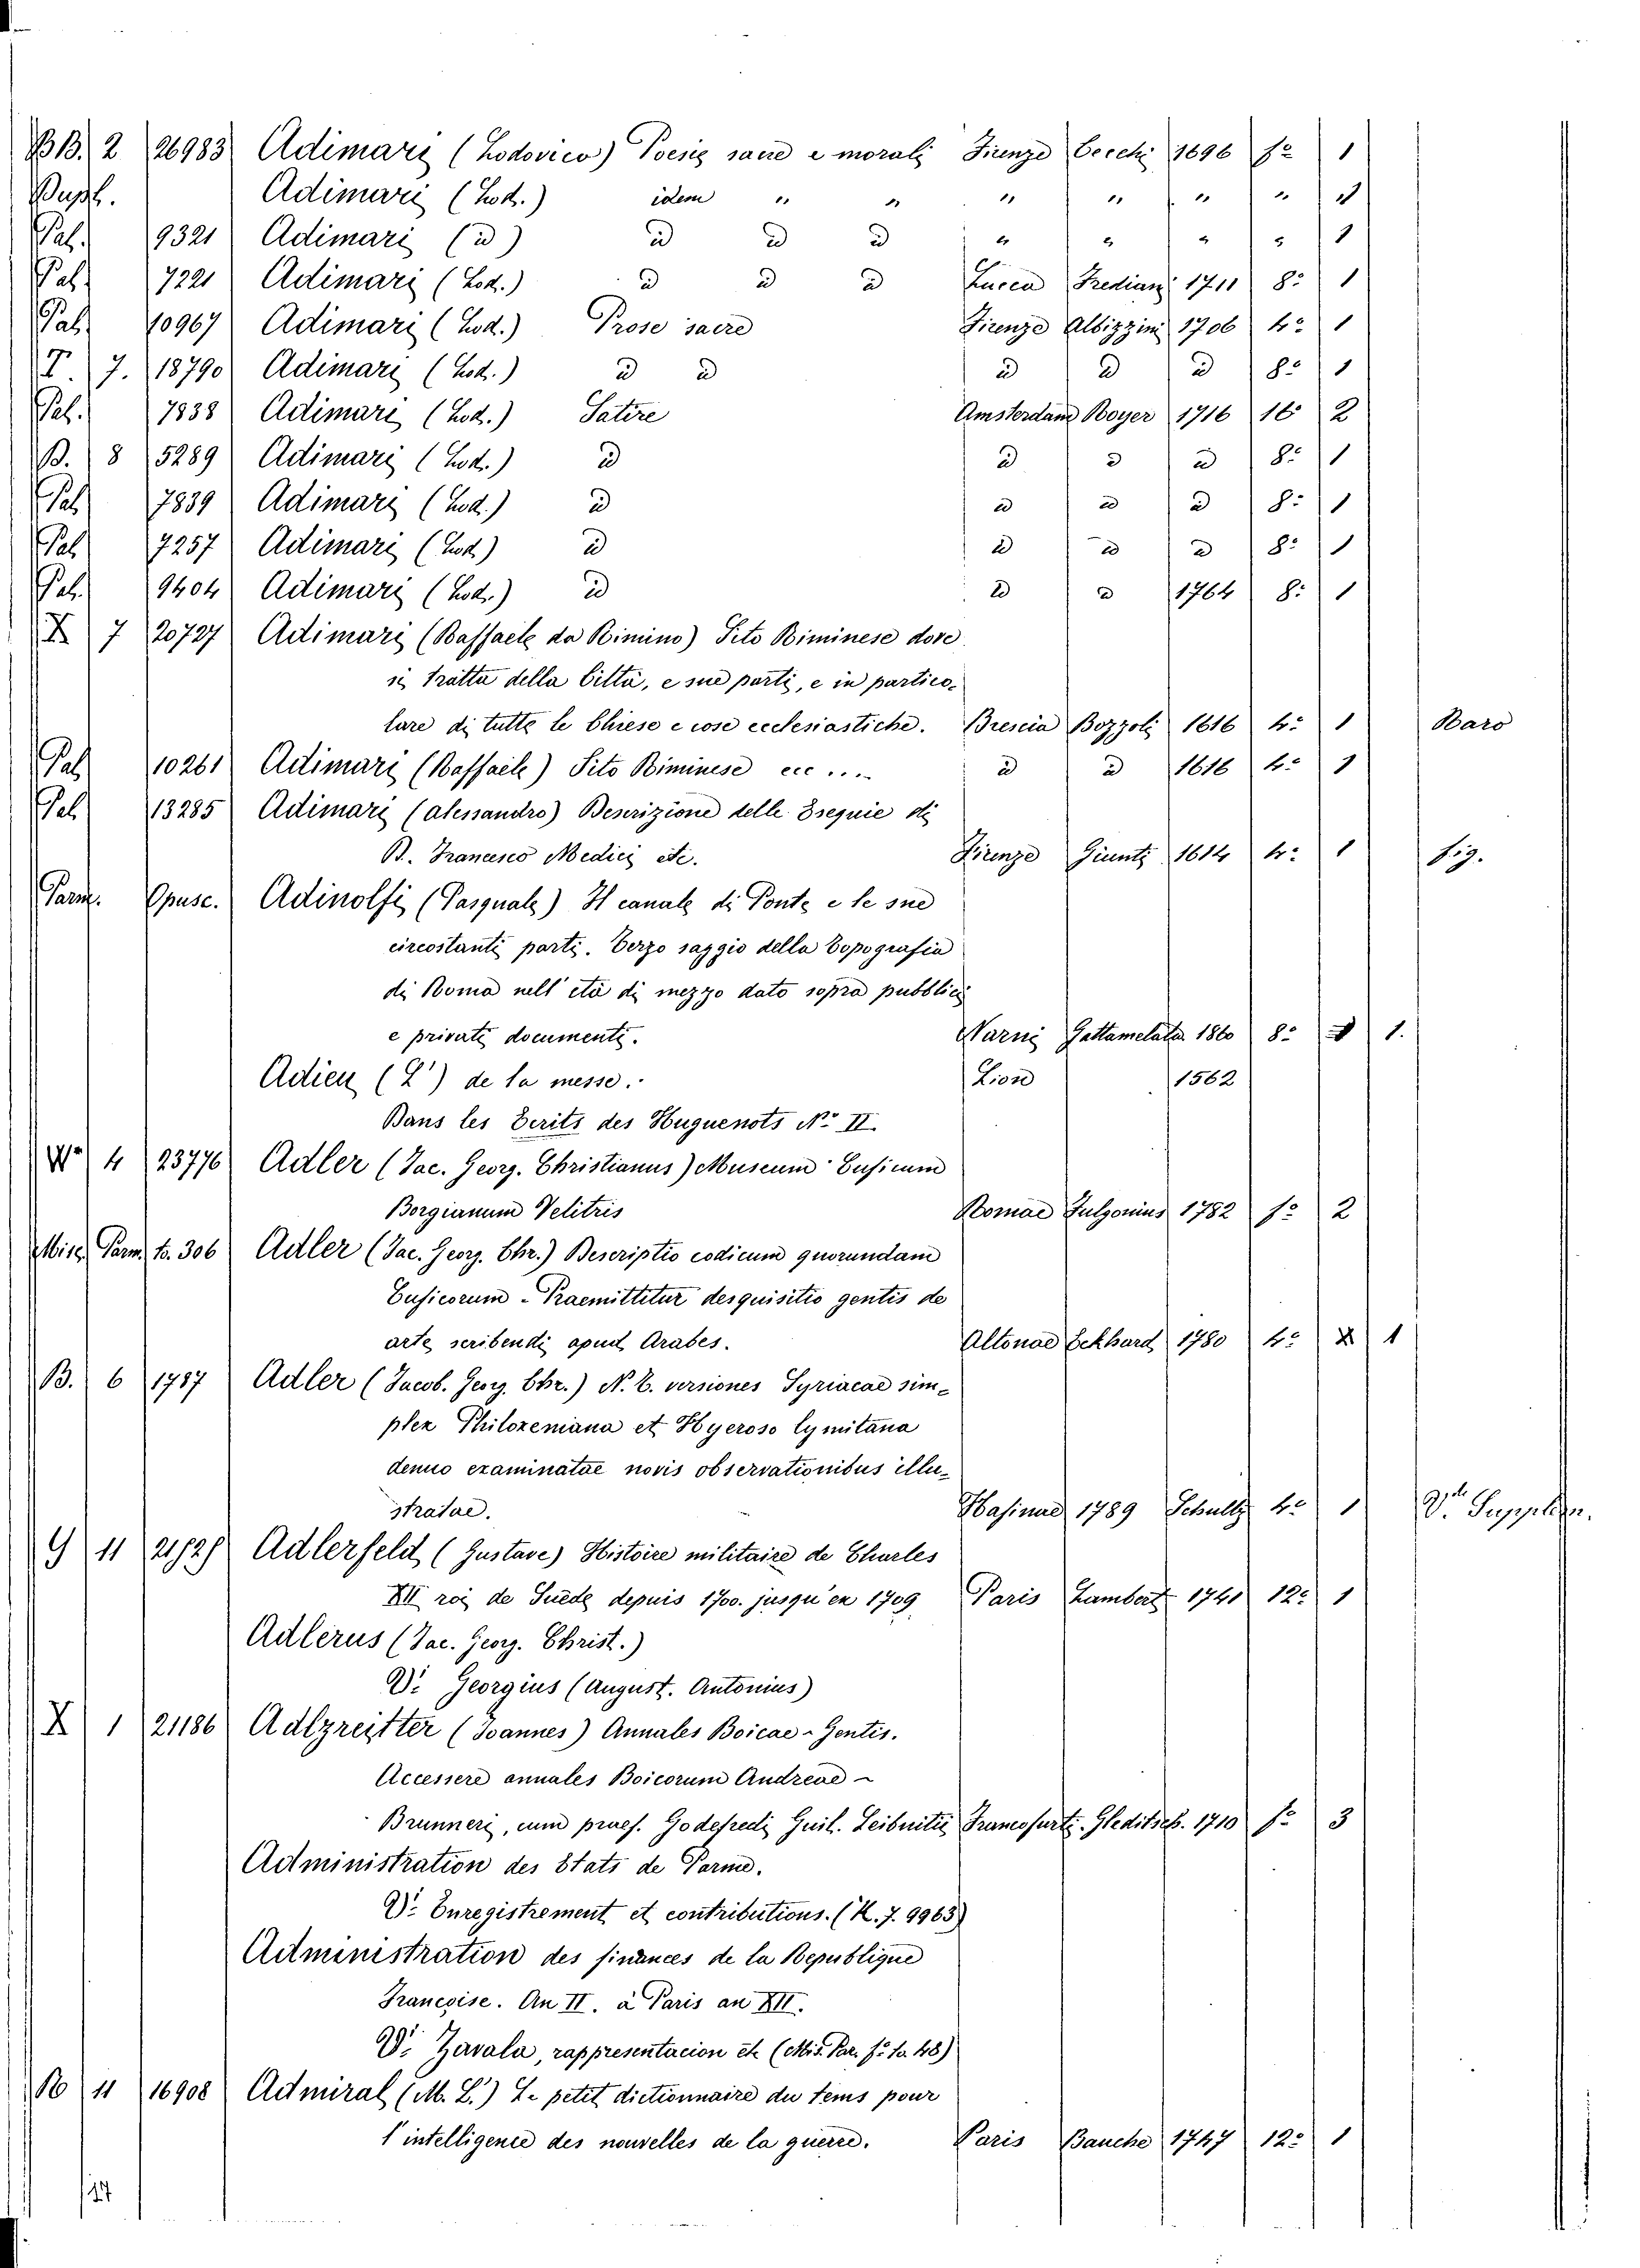 BB. 2 26983 Adimari (Lodovico) Poesie sacre e morali Firenze Cecchi 1696 f.º 1
Dupl. Adimari (Lod.) idem " " " " " " 1
Pal. 9321 Adimari (id) id id id " " " " 1
Pal. 7221 Adimari (Lod.) id id id Lucca Frediani 1711 8º 1
Pal. 10967 Adimari (Lod.) Prose sacre Firenze Albizzini 1706 4º 1
T. 7. 18790 Adimari (Lod.) id id id id id 8º 1
Pal. 7838 Adimari (Lod.) Satire Amsterdam Boyer 1716 16º 2
B. 8 5289 Adimari (Lod.) id id id id 8º 1
Pal. 7839 Adimari (Lod.) id id id id 8º 1
Pal. 7257 Adimari (Lod.) id id id id 8º 1
Pal. 9404 Adimari (Lod.) id id id 1764 8º 1
X 7 20727 Adimari (Raffaele da Rimino) Sito Riminese dove
si tratta della Città, e sue parti, e in partico-
lare di tutte le Chiese e cose ecclesiastiche. Brescia Bozzoli 1616 4º 1 Raro
Pal 10261 Adimari (Raffaele) Sito Riminese ecc .... id id 1616 4º 1
Pal. 13285 Adimari (Alessandro) Descrizione delle Esequie di
D. Francesco Medici etc. Firenze Giunti 1614 4º 1 fig.
Parm. Opusc. Adinolfi (Pasquale) Il canale di Ponte e le sue
circostanti parti. Terzo saggio della Topografia
di Roma nell'età di mezzo dato sopra pubblici
e privati documenti. Narni Gattamelata 1860 8º 1.
Adieu (L') de la messe. Lion 1562
Dans les Ecrits des Huguenots Nº II.
Wº 4 23776 Adler (Jac. Georg. Christianus) Museum Cuficum
Borgianum Velitris Romae Fulgonius 1782 fº 2
Misc. Parm. to. 306 Adler (Jac. Georg. Chr.) Descriptio codicum quorundam
Cuficorum - Praemittitur desquisitio gentis de
arte scribendi apud Arabes. Altonae Eckhard 1780 4º 1
B. 6 1787 Adler (Jacob. Georg. Chr.) N. T. versiones Syriacae sim-
plex Philoxeniana et Hyeroso lymitana
denuo examinatae novis observationibus illu-
stratae. Hafinae 1789 Schultz 4º 1 V. Supplem.
G 11 21721 Adlerfeld (Gustave) Histoire militaire de Charles
XII roi de Suède depuis 1700. jusqu'en 1709 Paris Lambert 1741 12º 1
Adlerus (Jac. Georg. Christ.)
V. Georgius (August. Antonius)
X 1 21186 Adlzreitter (Joannes) Annales Boicae - Gentis.
Accessere annales Boicorum Andreae -
Brunneri, cum praef. Godefredi Guil. Leibnitii Francofurti. Gleditsch. 1710 fº 3
Administration des Etats de Parme.
V. Enregistrement et contributions. (K. 7. 9963)
Administration des finances de la Republique
Françoise. An II. à Paris an XII.
V. Zavala, rappresentacion etc (Mis. Par. fº to. 48)
R 11 16908 Admiral (M. L.) Le petit dictionnaire du tems pour
l'intelligence des nouvelles de la guerre. Paris Bauche 1747 12º 1